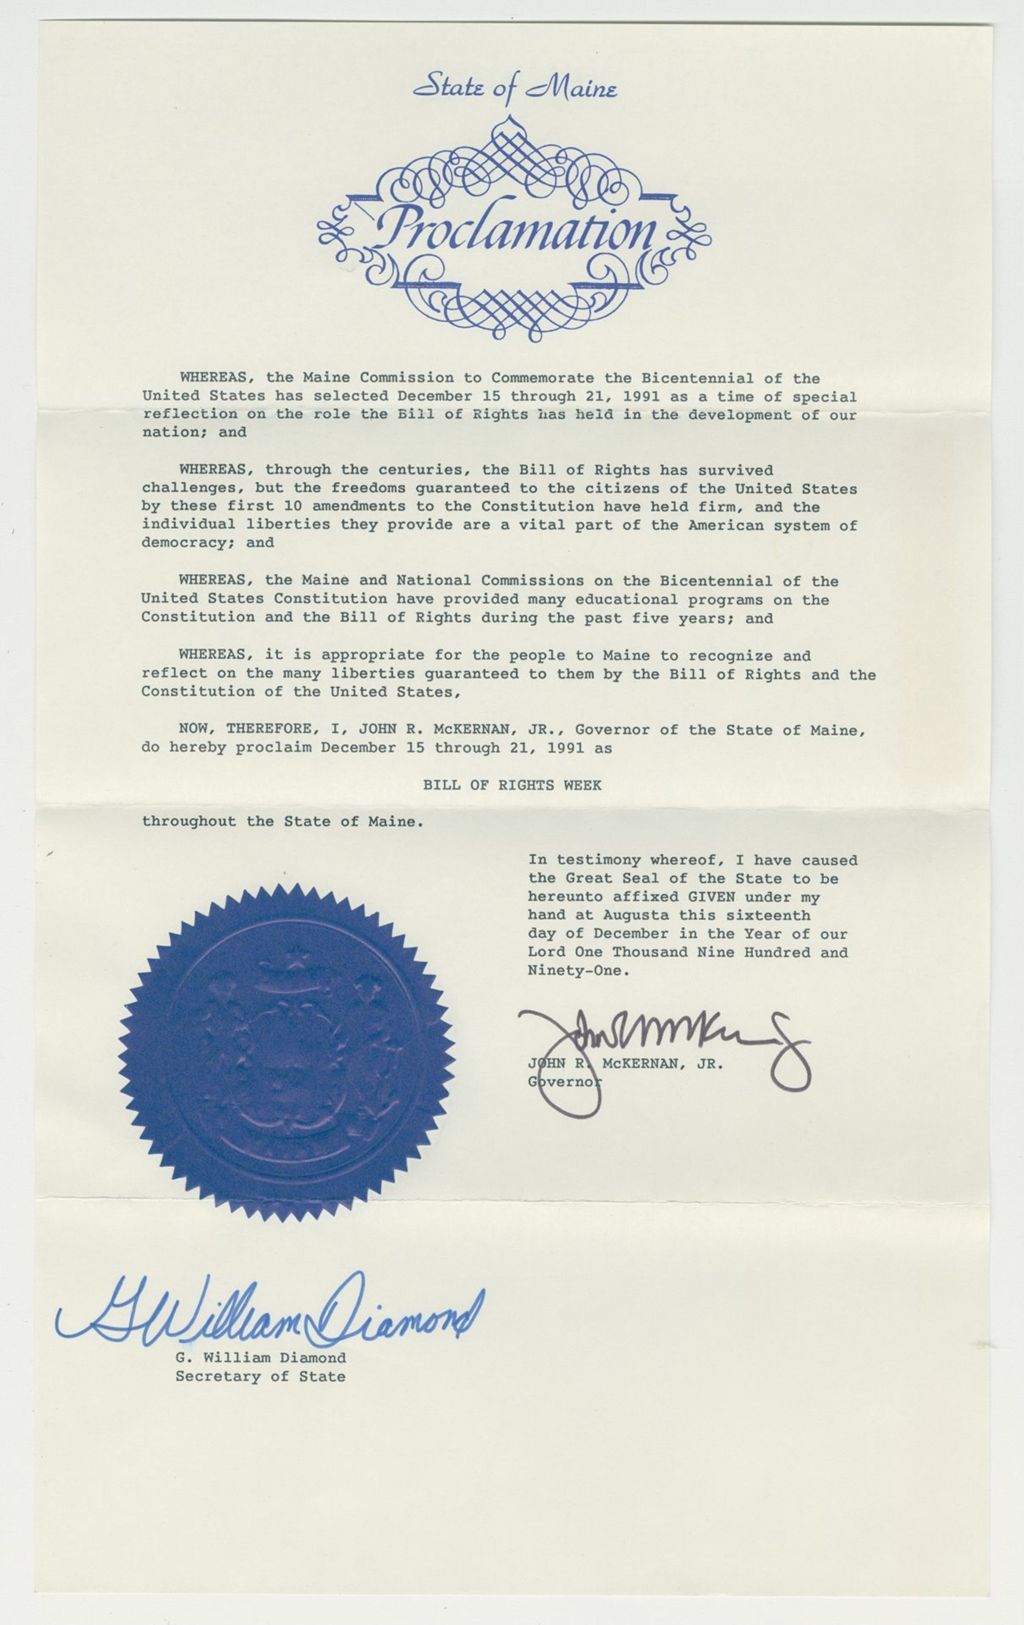 State of Maine
Proclamation
WHEREAS, the Maine Commission to Commemorate the Bicentennial of the
United States has selected December 15 through 21, 1991 as a time of special
reflection on the role the Bill of Rights has held in the development of our
nation; and
WHEREAS, through the centuries, the Bill of Rights has survived
challenges, but the freedoms guaranteed to the citizens of the United States
by these first 10 amendments to the Constitution have held firm, and the
individual liberties they provide are a vital part of the American system of
democracy; and
WHEREAS, the Maine and National Commissions on the Bicentennial of the
United States Constitution have provided many educational programs on the
Constitution and the Bill of Rights during the past five years; and
WHEREAS, it is appropriate for the people to Maine to recognize and
reflect on the many liberties guaranteed to them by the Bill of Rights and the
Constitution of the United States,
NOW, THEREFORE, I, JOHN R. McKERNAN, JR., Governor of the State of Maine,
do hereby proclaim December 15 through 21, 1991 as
BILL OF RIGHTS WEEK
throughout the State of Maine.
In testimony whereof, I have caused
the Great Seal of the State to be
hereunto affixed GIVEN under my
hand at Augusta this sixteenth
day of December in the Year of our
Lord One Thousand Nine Hundred and
Ninety-One.
John R McKernan Jr
JOHN R. McKERNAN, JR.
Governor
G William Diamond
G. William Diamond
Secretary of State